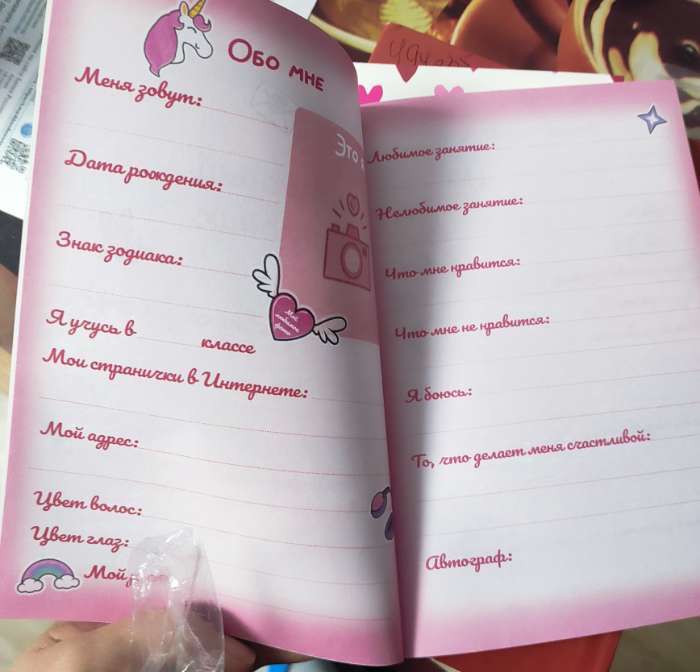 Обо мне
Меня зовут:
Дата рождения:
Знак зодиака:
Я учусь в классе
Мои странички в Интернете:
Мой адрес:
Цвет волос:
Цвет глаз:
Мой
Это
Моё
любимое
фото
Любимое занятие:
Нелюбимое занятие:
Что мне нравится:
Что мне не нравится:
Я боюсь:
То, что делает меня счастливой:
Автограф: